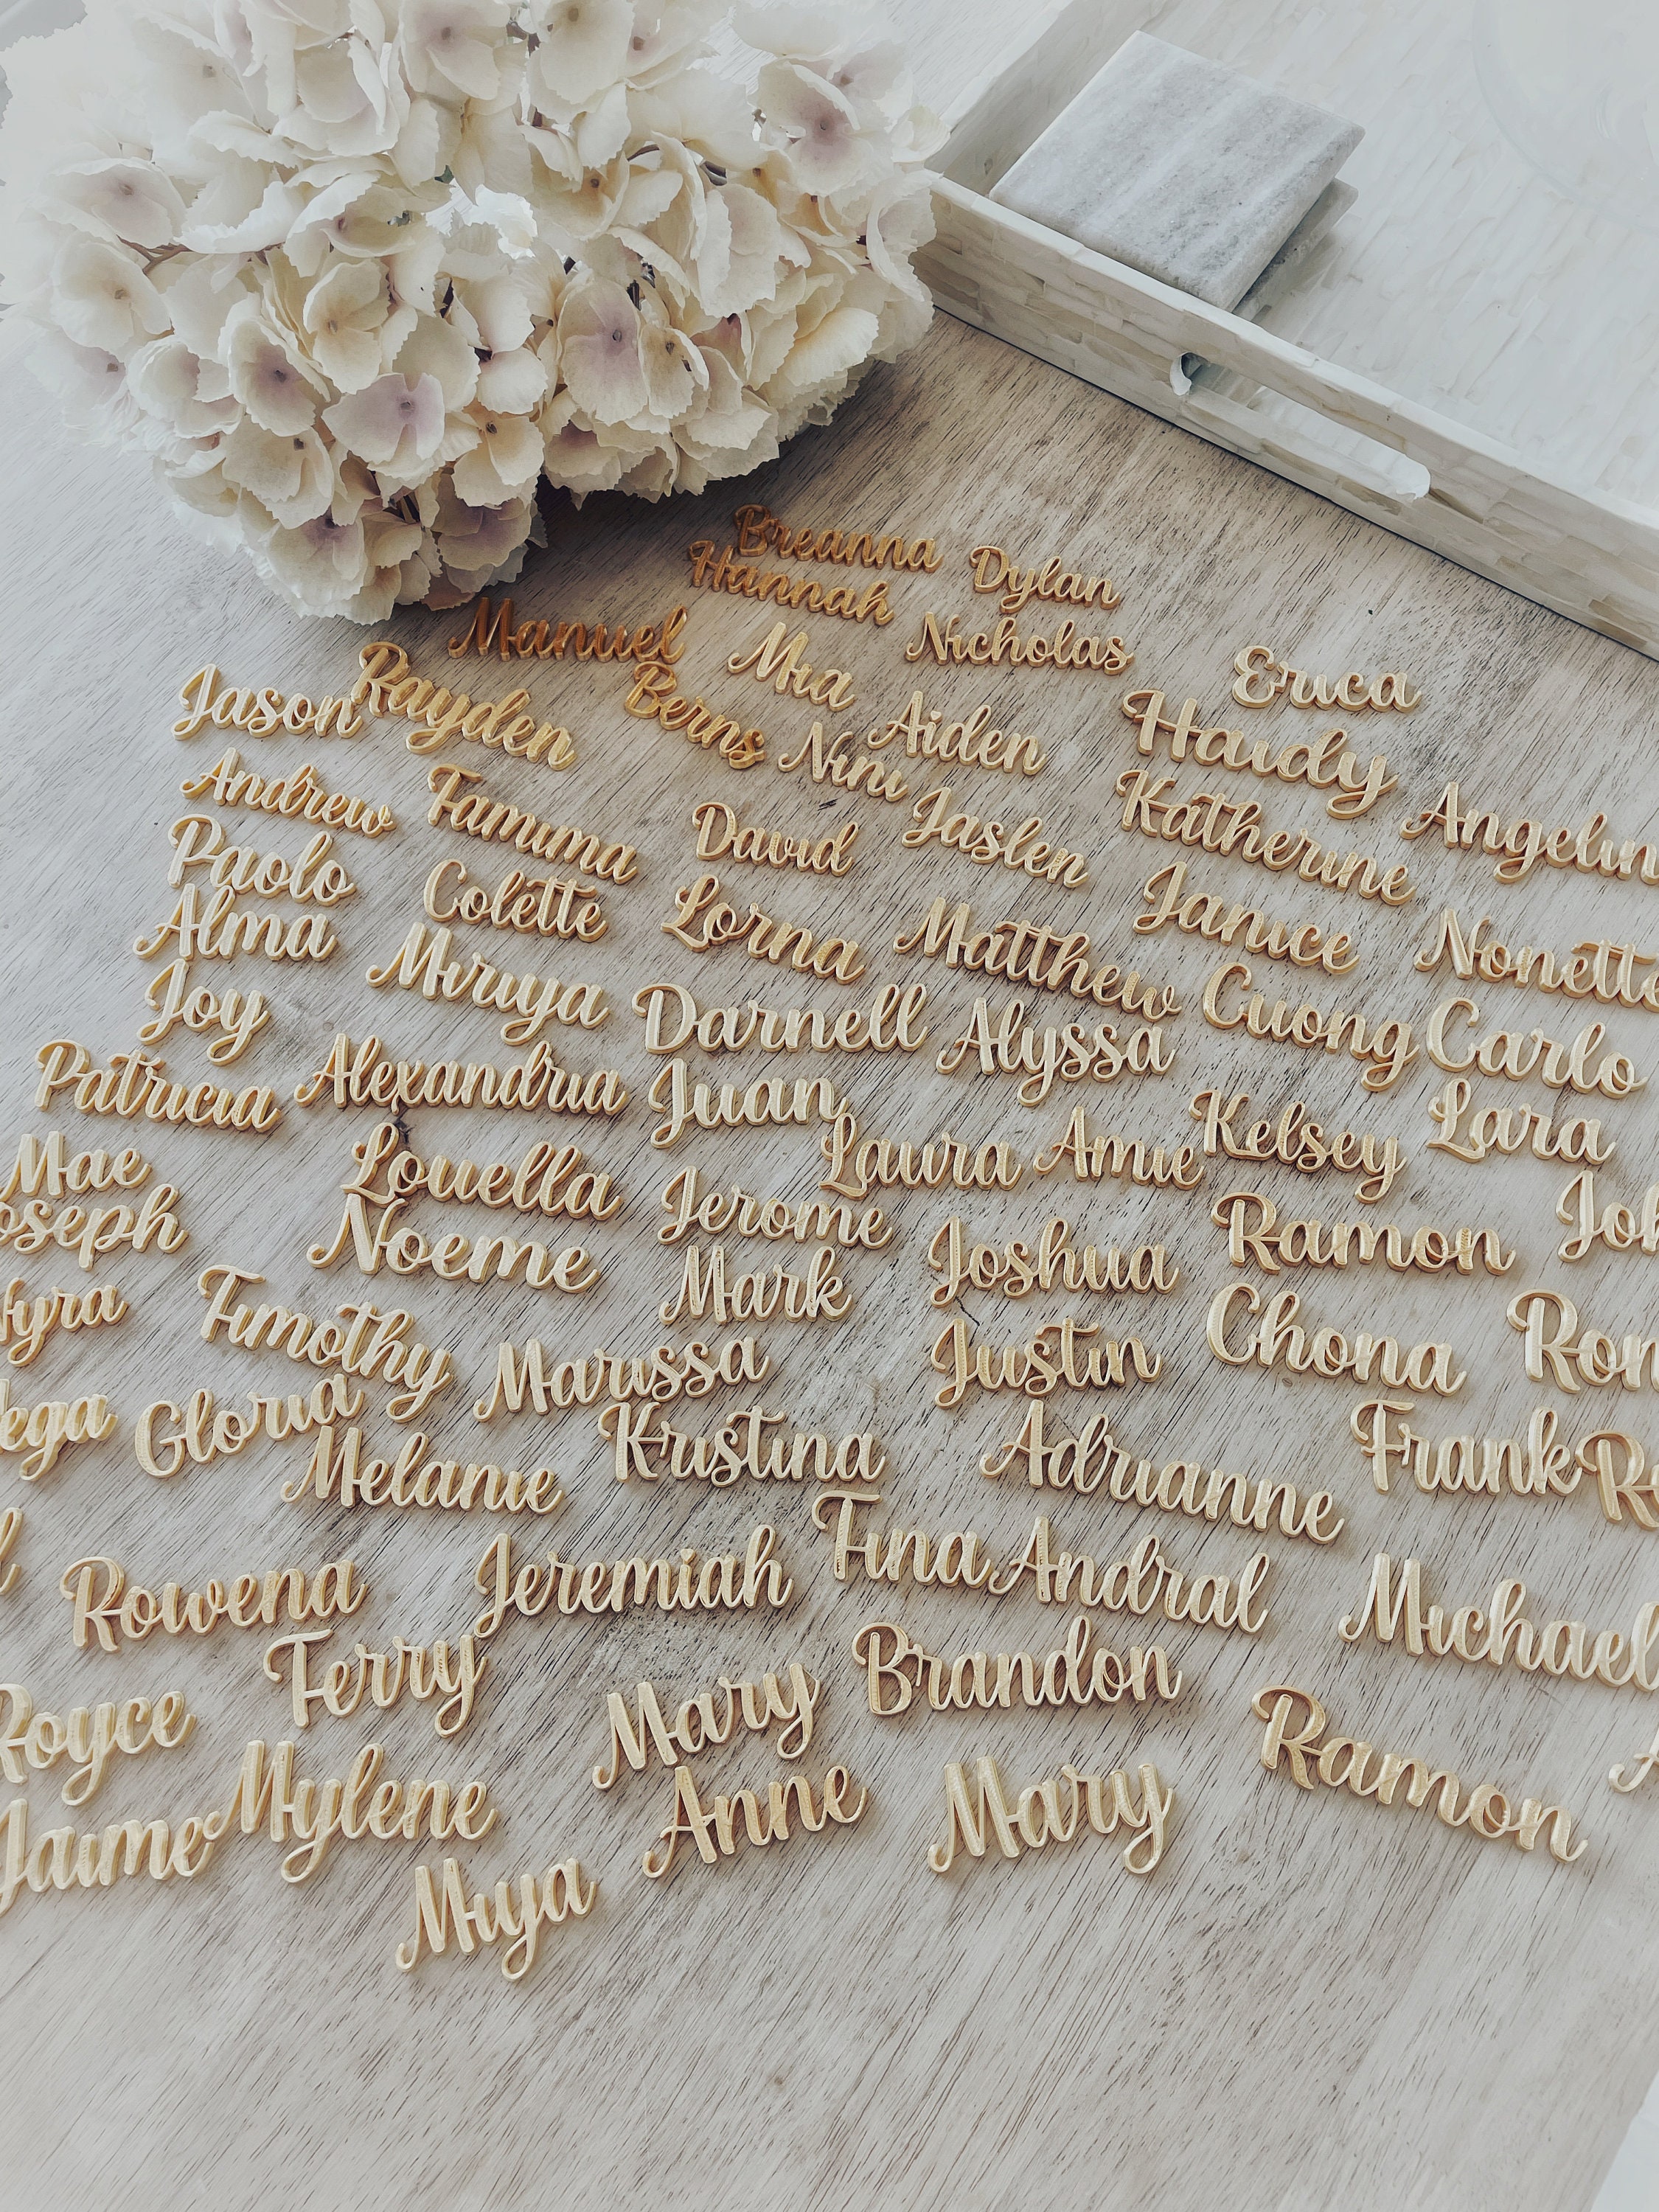 Breanna
Dylan
Hannah
Manuel
Mia
Nicholas
Erica
Jason
Rayden
Berns
Aiden
Haidy
Nini
Andrew
Famima
David
Jaslen
Katherine
Paolo
Colette
Lorna
Matthew
Janice
Alma
Miriya
Darnell
Cuong
Carlo
Joy
Alyssa
Patricia
Alexandria
Juan
Kelsey
Lara
Mae
Louella
Laura
Amie
Jerome
Noeme
Joshua
Ramon
Mark
Timothy
Marissa
Justin
Chona
Gloria
Kristina
Adrianne
Frank
Melanie
Rowena
Jeremiah
Tina
Andral
Michael
Terry
Brandon
Royce
Mary
Ramon
Jaime
Mylene
Anne
Mary
Miya